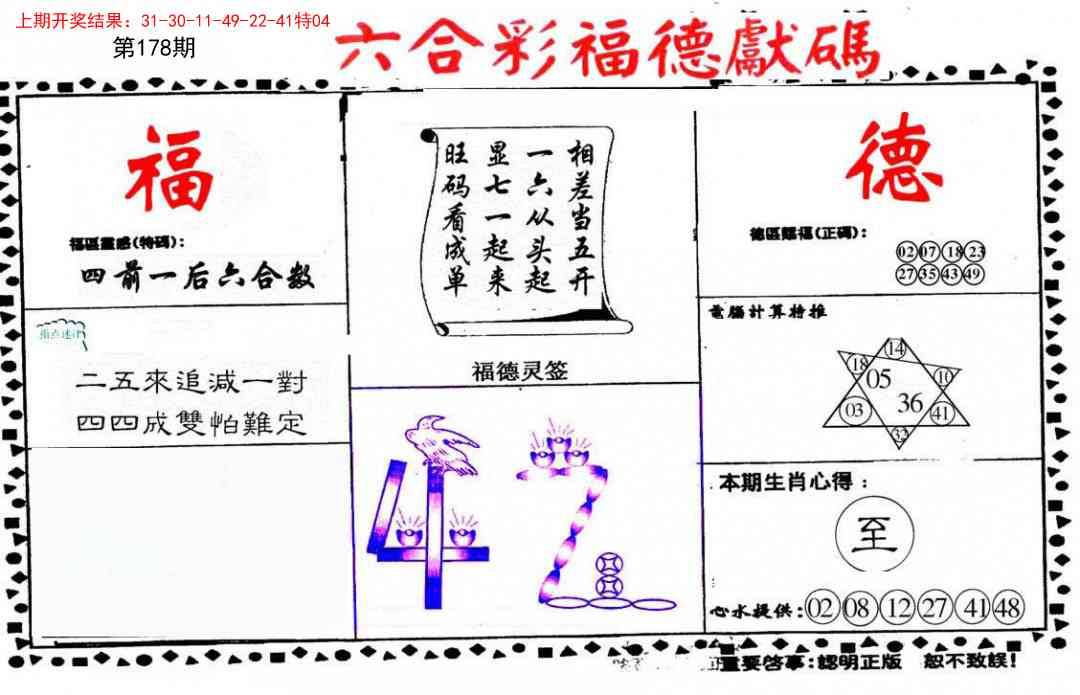 上期开奖结果：31-30-11-49-22-41特04
第178期
六合彩福德獻碼
福
福區靈感(特碼)：
四前一后六合数
二五來追減一對
四四成雙怕難定
相差当五开
一六从头起
显七一起来
旺码看成单
福德灵签
42
德
德區賜福(正碼)：
02 07 18 23
27 35 43 49
電腦計算特推
14
18 05 10
03 36 41
32
本期生肖心得：
至
心水提供：02 08 12 27 41 48
重要啓事：認明正版 恕不致誤！